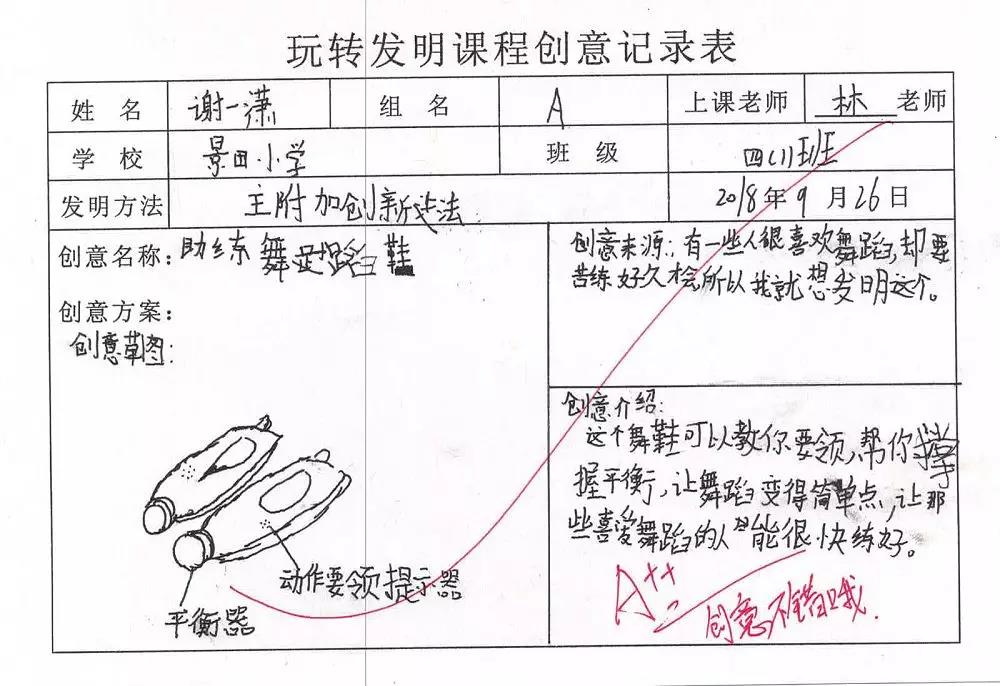 玩转发明课程创意记录表
姓 名 谢一潇 组 名 A 上课老师 林 老师
学 校 景田小学 班 级 四(1)班
发明方法 主附加创新法 2018年9月26日
创意名称:助练舞蹈鞋
创意方案:
创意草图:
动作要领提示器
平衡器
创意来源:有一些人很喜欢舞蹈,却要
苦练好久才会所以我就想发明这个。
创意介绍:
这个舞鞋可以教你要领,帮你掌
握平衡,让舞蹈变得简单点,让那
些喜爱舞蹈的人能很快练好。
A++
创意不错哦.